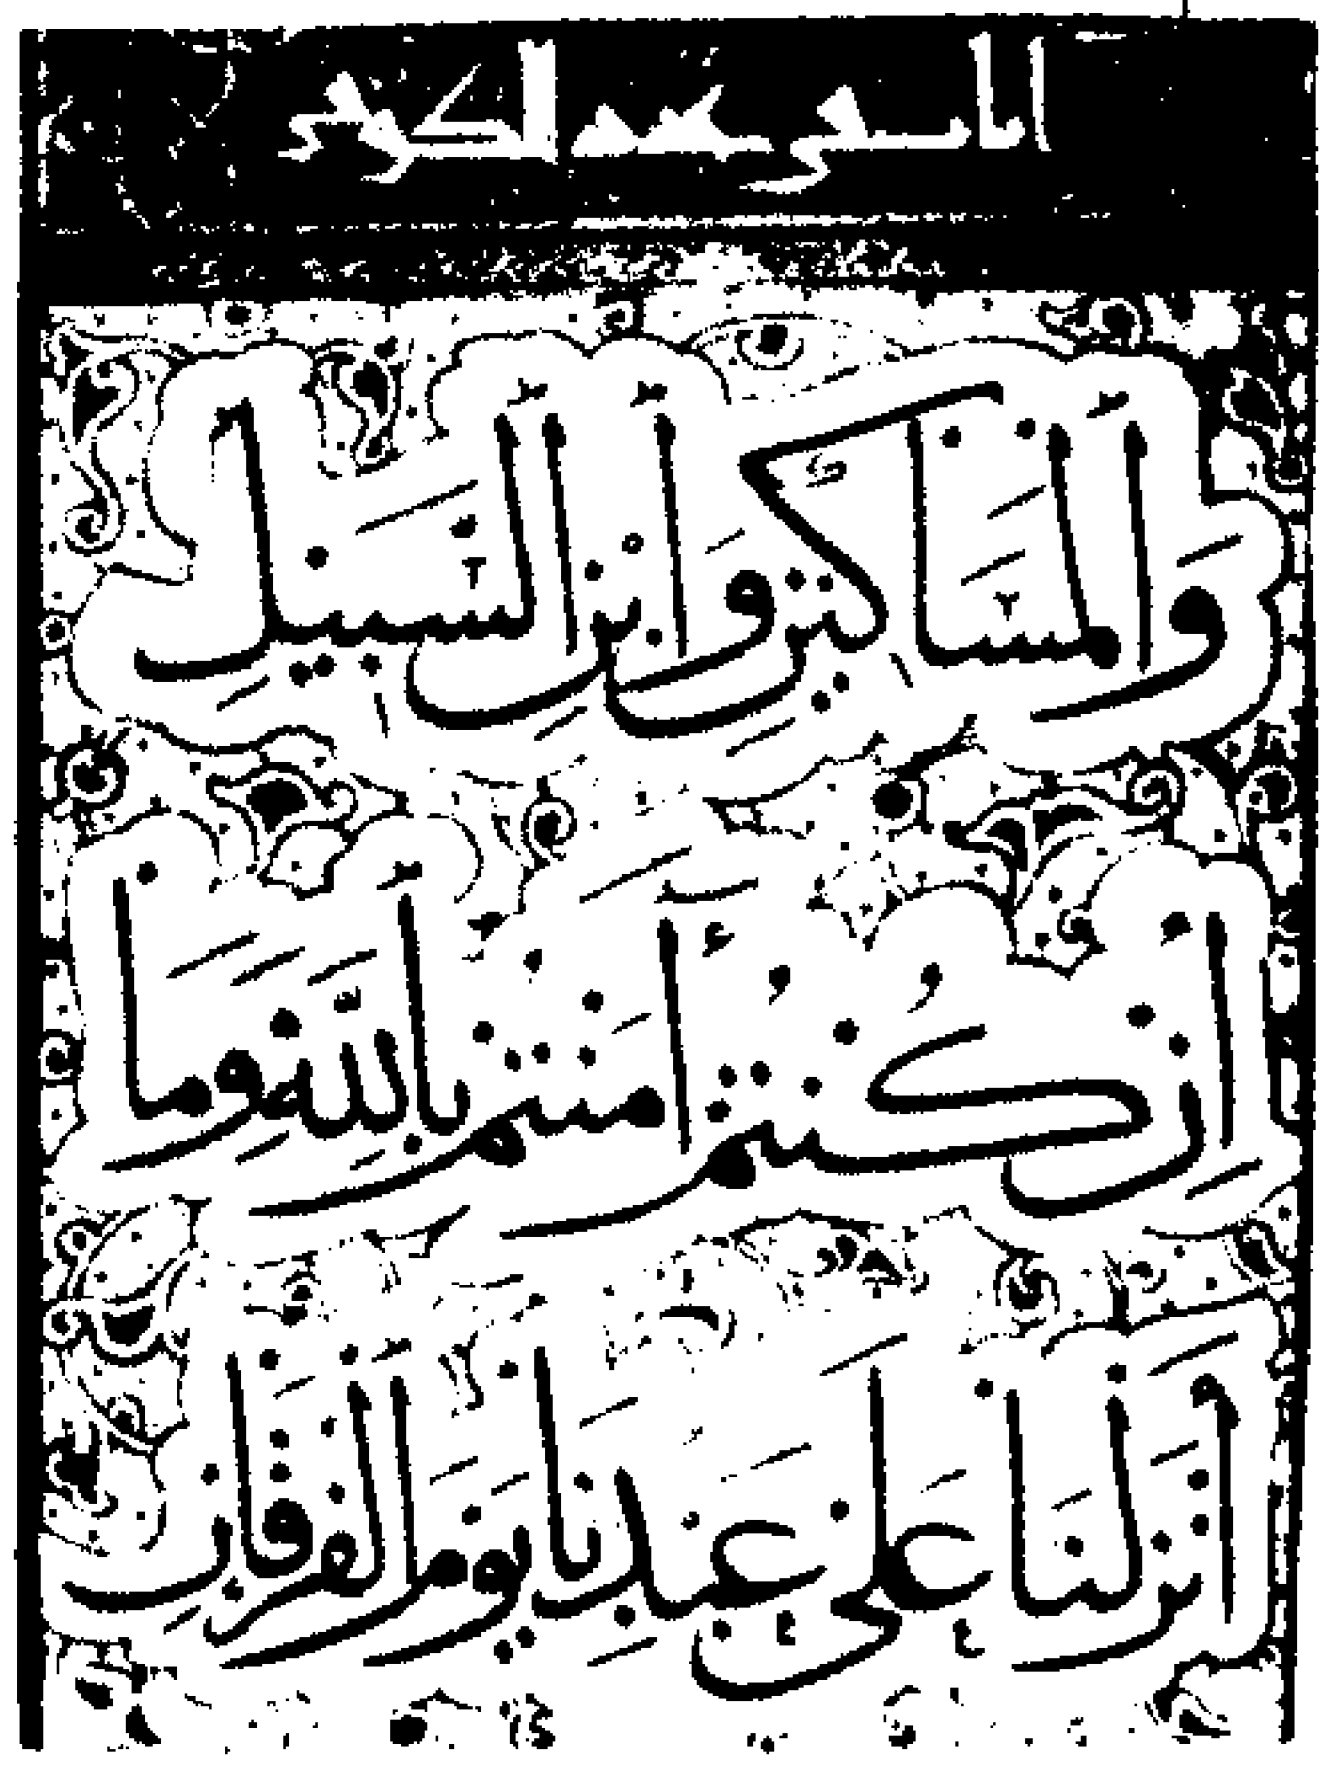 وَالْمَسَاكِينِ وَابْنِ السَّبِيلِ
اِنْ كُنْتُمْ اٰمَنْتُمْ بِاللّٰهِ وَمَا
اَنْزَلْنَا عَلٰى عَبْدِنَا يَوْمَ الْفُرْقَانِ